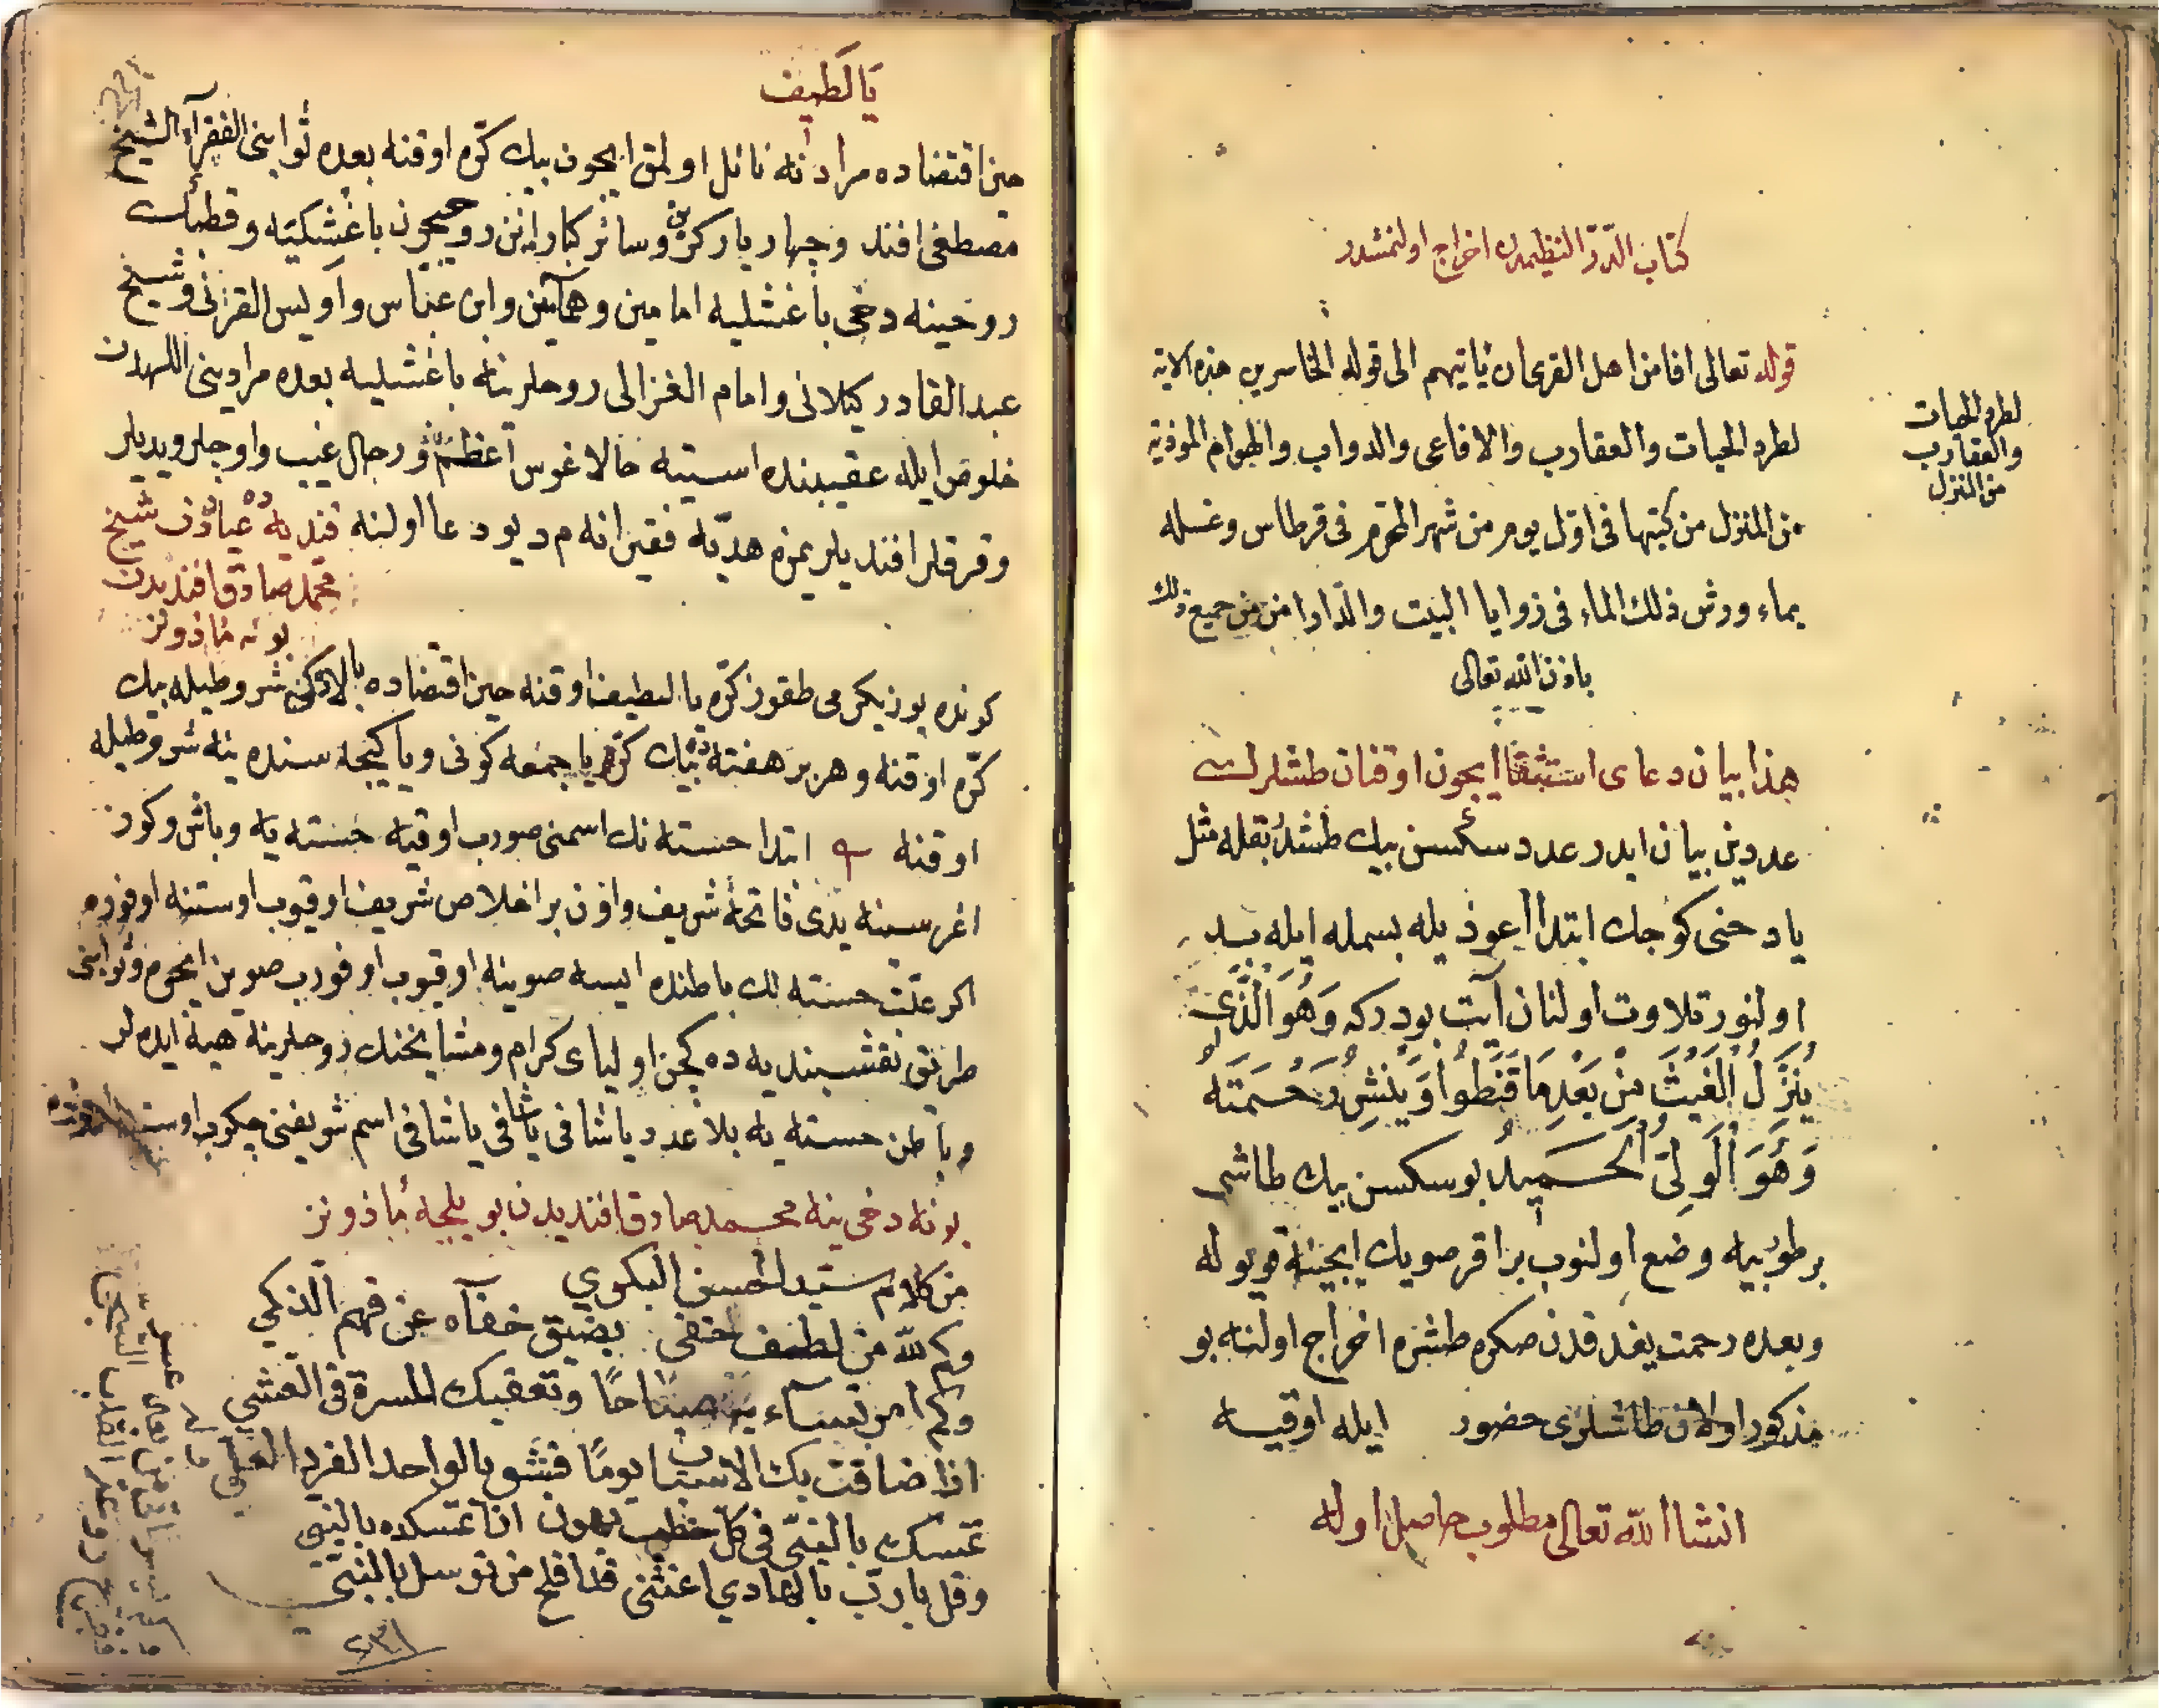 كتاب الدر النظيمدن اخراج اولنمشدر
قوله تعالى افامن اهل القرى ان ياتيهم الى قوله الخاسرين هذه الاية
لطرد الحيات والعقارب والافاعى والدواب والهوام الموذية
من المنزل من كتبها فى اول يوم من شهر المحرم فى قرطاس وغسله
بماء ورش ذلك الماء فى زوايا البيت والدار امن من جميع ذلك
باذن الله تعالى
لطرد الحيات
والعقارب
من المنزل
هذا بيان دعاى استسقا ايچون اوقنان طشلرك
عددين بيان ايدر عدد سكسن بيك طشدر بقله مثل
ياد خى كوجك ابتدا اعوذ يله بسمله ايله
اولنور تلاوت اولنان آيت بودركه وَهُوَ الَّذَى
يُنَزِّلُ الْغَيْثَ مِنْ بَعْدِ مَا قَنَطُوا وَيَنْشُرُ رَحْمَتَهُ
وَهُوَ الْوَلِىُّ الْحَمِيدُ بو سكسن بيك طاشى
بر طوبيه وضع اولنوب بر اقر صويك ايچينه قويوله
وبعده رحمت يغدقدن صكره طشره اخراج اولنه بو
مذكور اولان طاشلرى حضور ايله اوقيه
انشا الله تعالى مطلوب حاصل اوله
يَا لَطيف
حين اقتضاده مرادنه نائل اولمق ايچون بيك كره اوقنه بعده ثوابنى الفقرآء الشيخ
مصطفى افند وجهار يار كزين وسائر كبار روحيچون باغشكيه وقطبك
روحينه دخى باغشليه امامين وهمامين وابن عباس واويس القرنى وشيخ
عبد القادر كيلانى وامام الغزالى روحلرينه باغشليه بعده مرادينى اللهدن
خلوص ايله عقيبنده استيه حالا غوس اعظم ورجال غيب واوچلر ويديلر
وقرقلر افنديلريمزه هديه فقيرانه م ديو دعا اولنه
شيخ
محمد صادق افنديدن
بونه ماذونز
كونده يوز يكرمى طقوز كره يا لطيف اوقنه حين اقتضاده بالاده كى شروطيله بيك
كره اوقنه وهر بر هفته ده بيك كره يا جمعه كونى ويا كيجه سنده ينه شروطيله
اوقنه ابتدا خسته نك اسمنى صورب اوقيه خسته يه وباش وكوز
اغريسنه يدى فاتحهٔ شريف واون بر اخلاص شريف اوقيوب اوستنه اوفوره
اكر علت خسته لك باطنده ايسه صوينه اوقيوب اوفورب صوين ايچوره وثوابنى
طريق نقشبنديه ده كچن اولياى كرام ومشايخنك روحلرينه هبه ايده لر
وباطن خسته يه بلا عدد ياشافى ياشافى ياشافى اسم شريفنى چكوب
بونه دخى ينه محمد صادق افنديدن بويلجه ماذونز
من كلام سيد الحسن البكري
وكم لله من لطف خفى يضيق خفآه عن فهم الذكي
وكم امر تساء به صباحًا وتعقبك المسرة فى العشي
اذا ضاقت بك الاسباب يومًا فثق بالواحد الفرد العلي
تمسك بالنبي فى كل خطب يهون اذا تمسك بالنبي
وقل يا رب بالهادي اغثنى فما افلح من توسل بالنبي